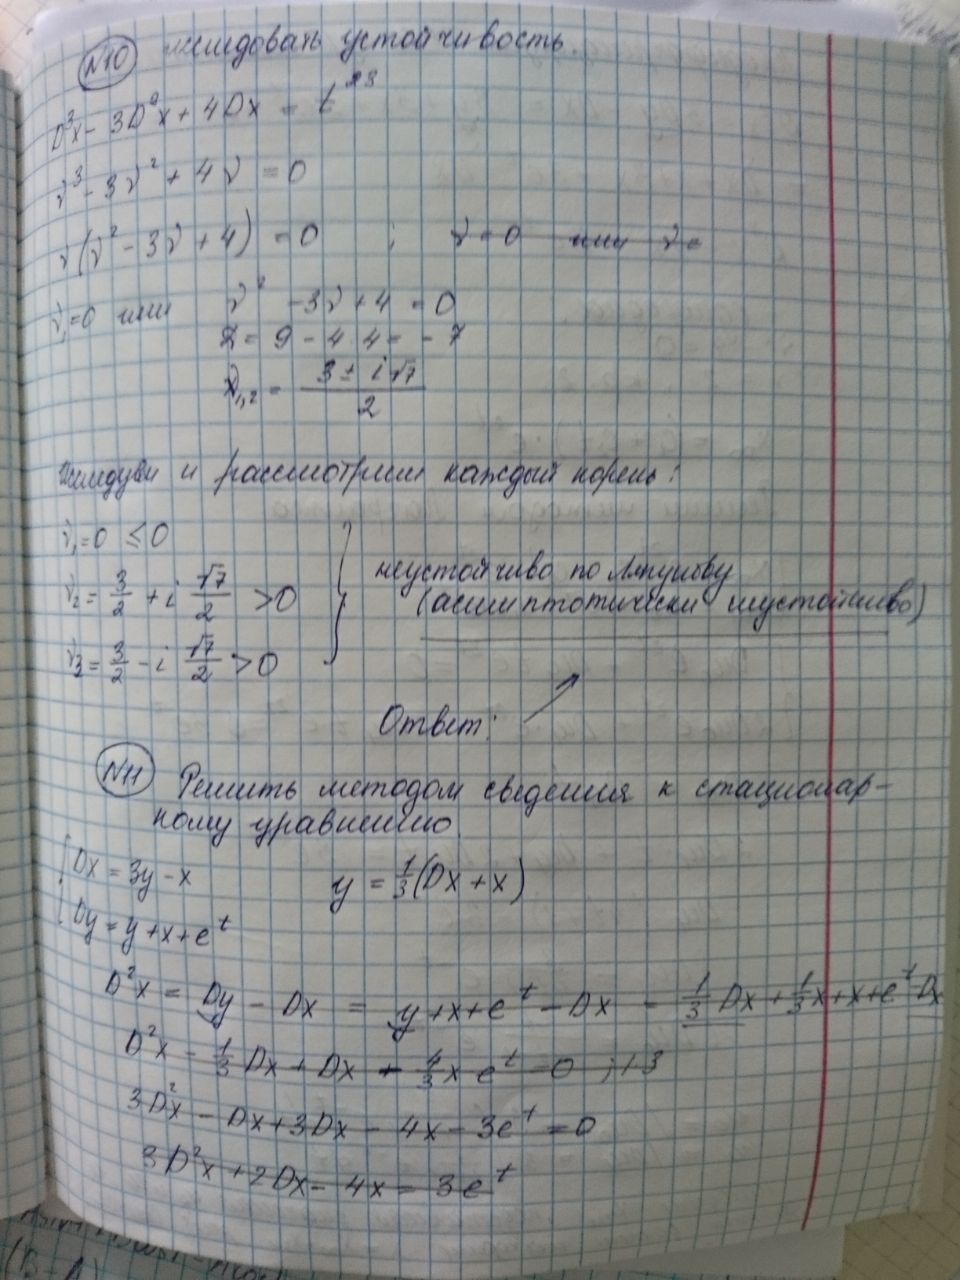 №10 исследовать устойчивость
D³x - 3D²x + 4Dx = t²³
ν³ - 3ν² + 4ν = 0
ν(ν² - 3ν + 4) = 0 ; ν = 0 или ν =
ν₁=0 или ν² - 3ν + 4 = 0
D = 9 - 4·4 = -7
ν₁,₂ = (3 ± i√7)/2
Исследуем и рассмотрим каждый корень:
ν₁=0 ≤0
ν₂ = 3/2 + i √7/2 >0
ν₃ = 3/2 - i √7/2 >0
неустойчиво по Ляпунову
(асимптотически неустойчиво)
Ответ:
№11 Решить методом сведения к стационар-
ному уравнению
Dx = 3y - x
y = 1/3(Dx + x)
Dy = y + x + e^t
D²x = Dy - Dx = y + x + e^t - Dx = 1/3 Dx + 1/3 x + x + e^t - Dx
D²x - 1/3 Dx + Dx - 4/3 x e^t = 0 ; ·3
3D²x - Dx + 3Dx - 4x - 3e^t = 0
3D²x + 2Dx - 4x = 3e^t